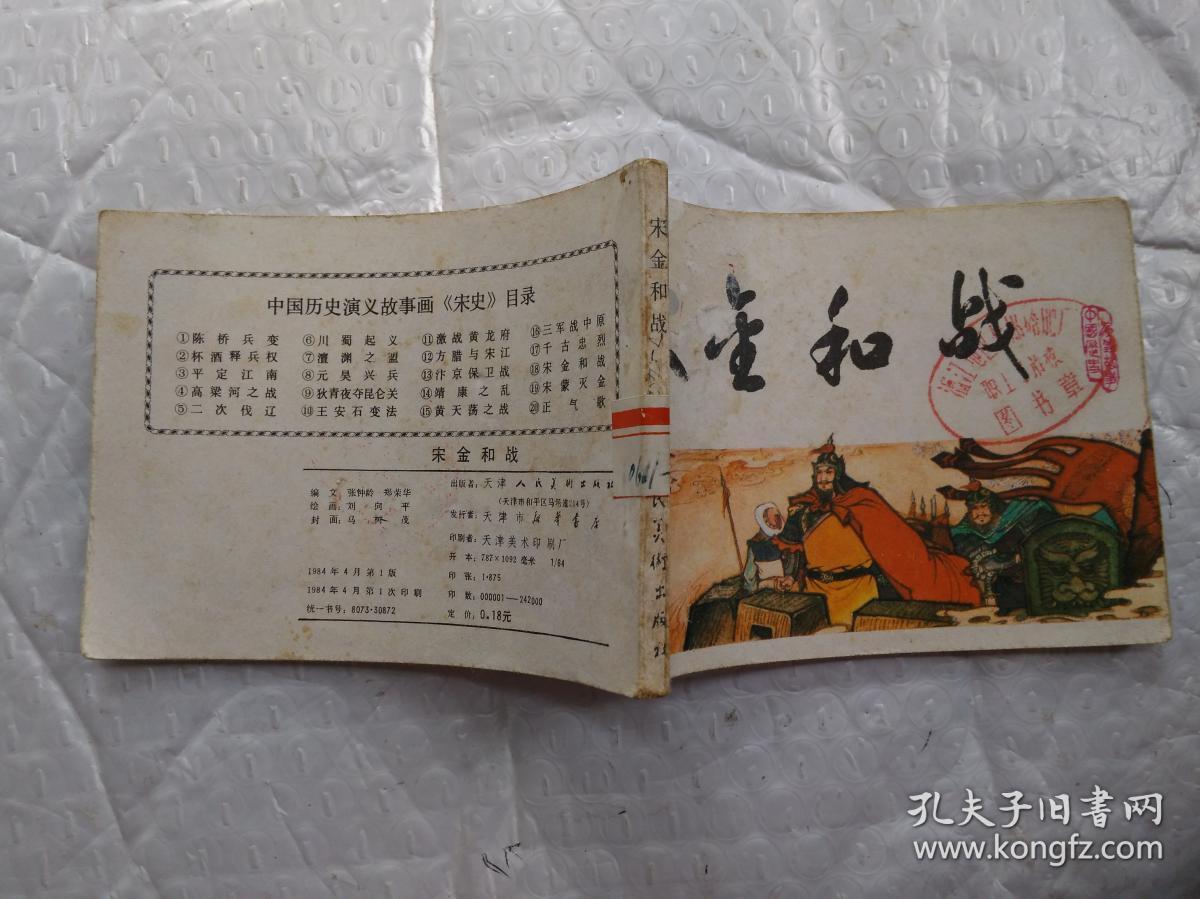 中国历史演义故事画《宋史》目录
①陈桥兵变 ⑥川蜀起义 ⑪激战黄龙府 ⑯三军战中原
②杯酒释兵权 ⑦澶渊之盟 ⑫方腊与宋江 ⑰千古忠烈
③平定江南 ⑧元昊兴兵 ⑬汴京保卫战 ⑱宋金和战
④高梁河之战 ⑨狄青夜夺昆仑关 ⑭靖康之乱 ⑲宋蒙灭金
⑤二次伐辽 ⑩王安石变法 ⑮黄天荡之战 ⑳正气歌
宋金和战
编文:张钟龄 郑荣华
绘画:刘向平
封面:马
1984年4月第1版
1984年4月第1次印刷
统一书号:8073·30872
出版者:天津人民美术出版社
(天津市和平区马场道
发行者:天津市新华书店
印刷者:天津美术印刷厂
开本:787×1092毫米 1/64
印张:1·875
印数:000001—242000
定价:0.18元
宋金和战
民美术出版社
金和战
职工
图书章
孔夫子旧书网
www.kongfz.com